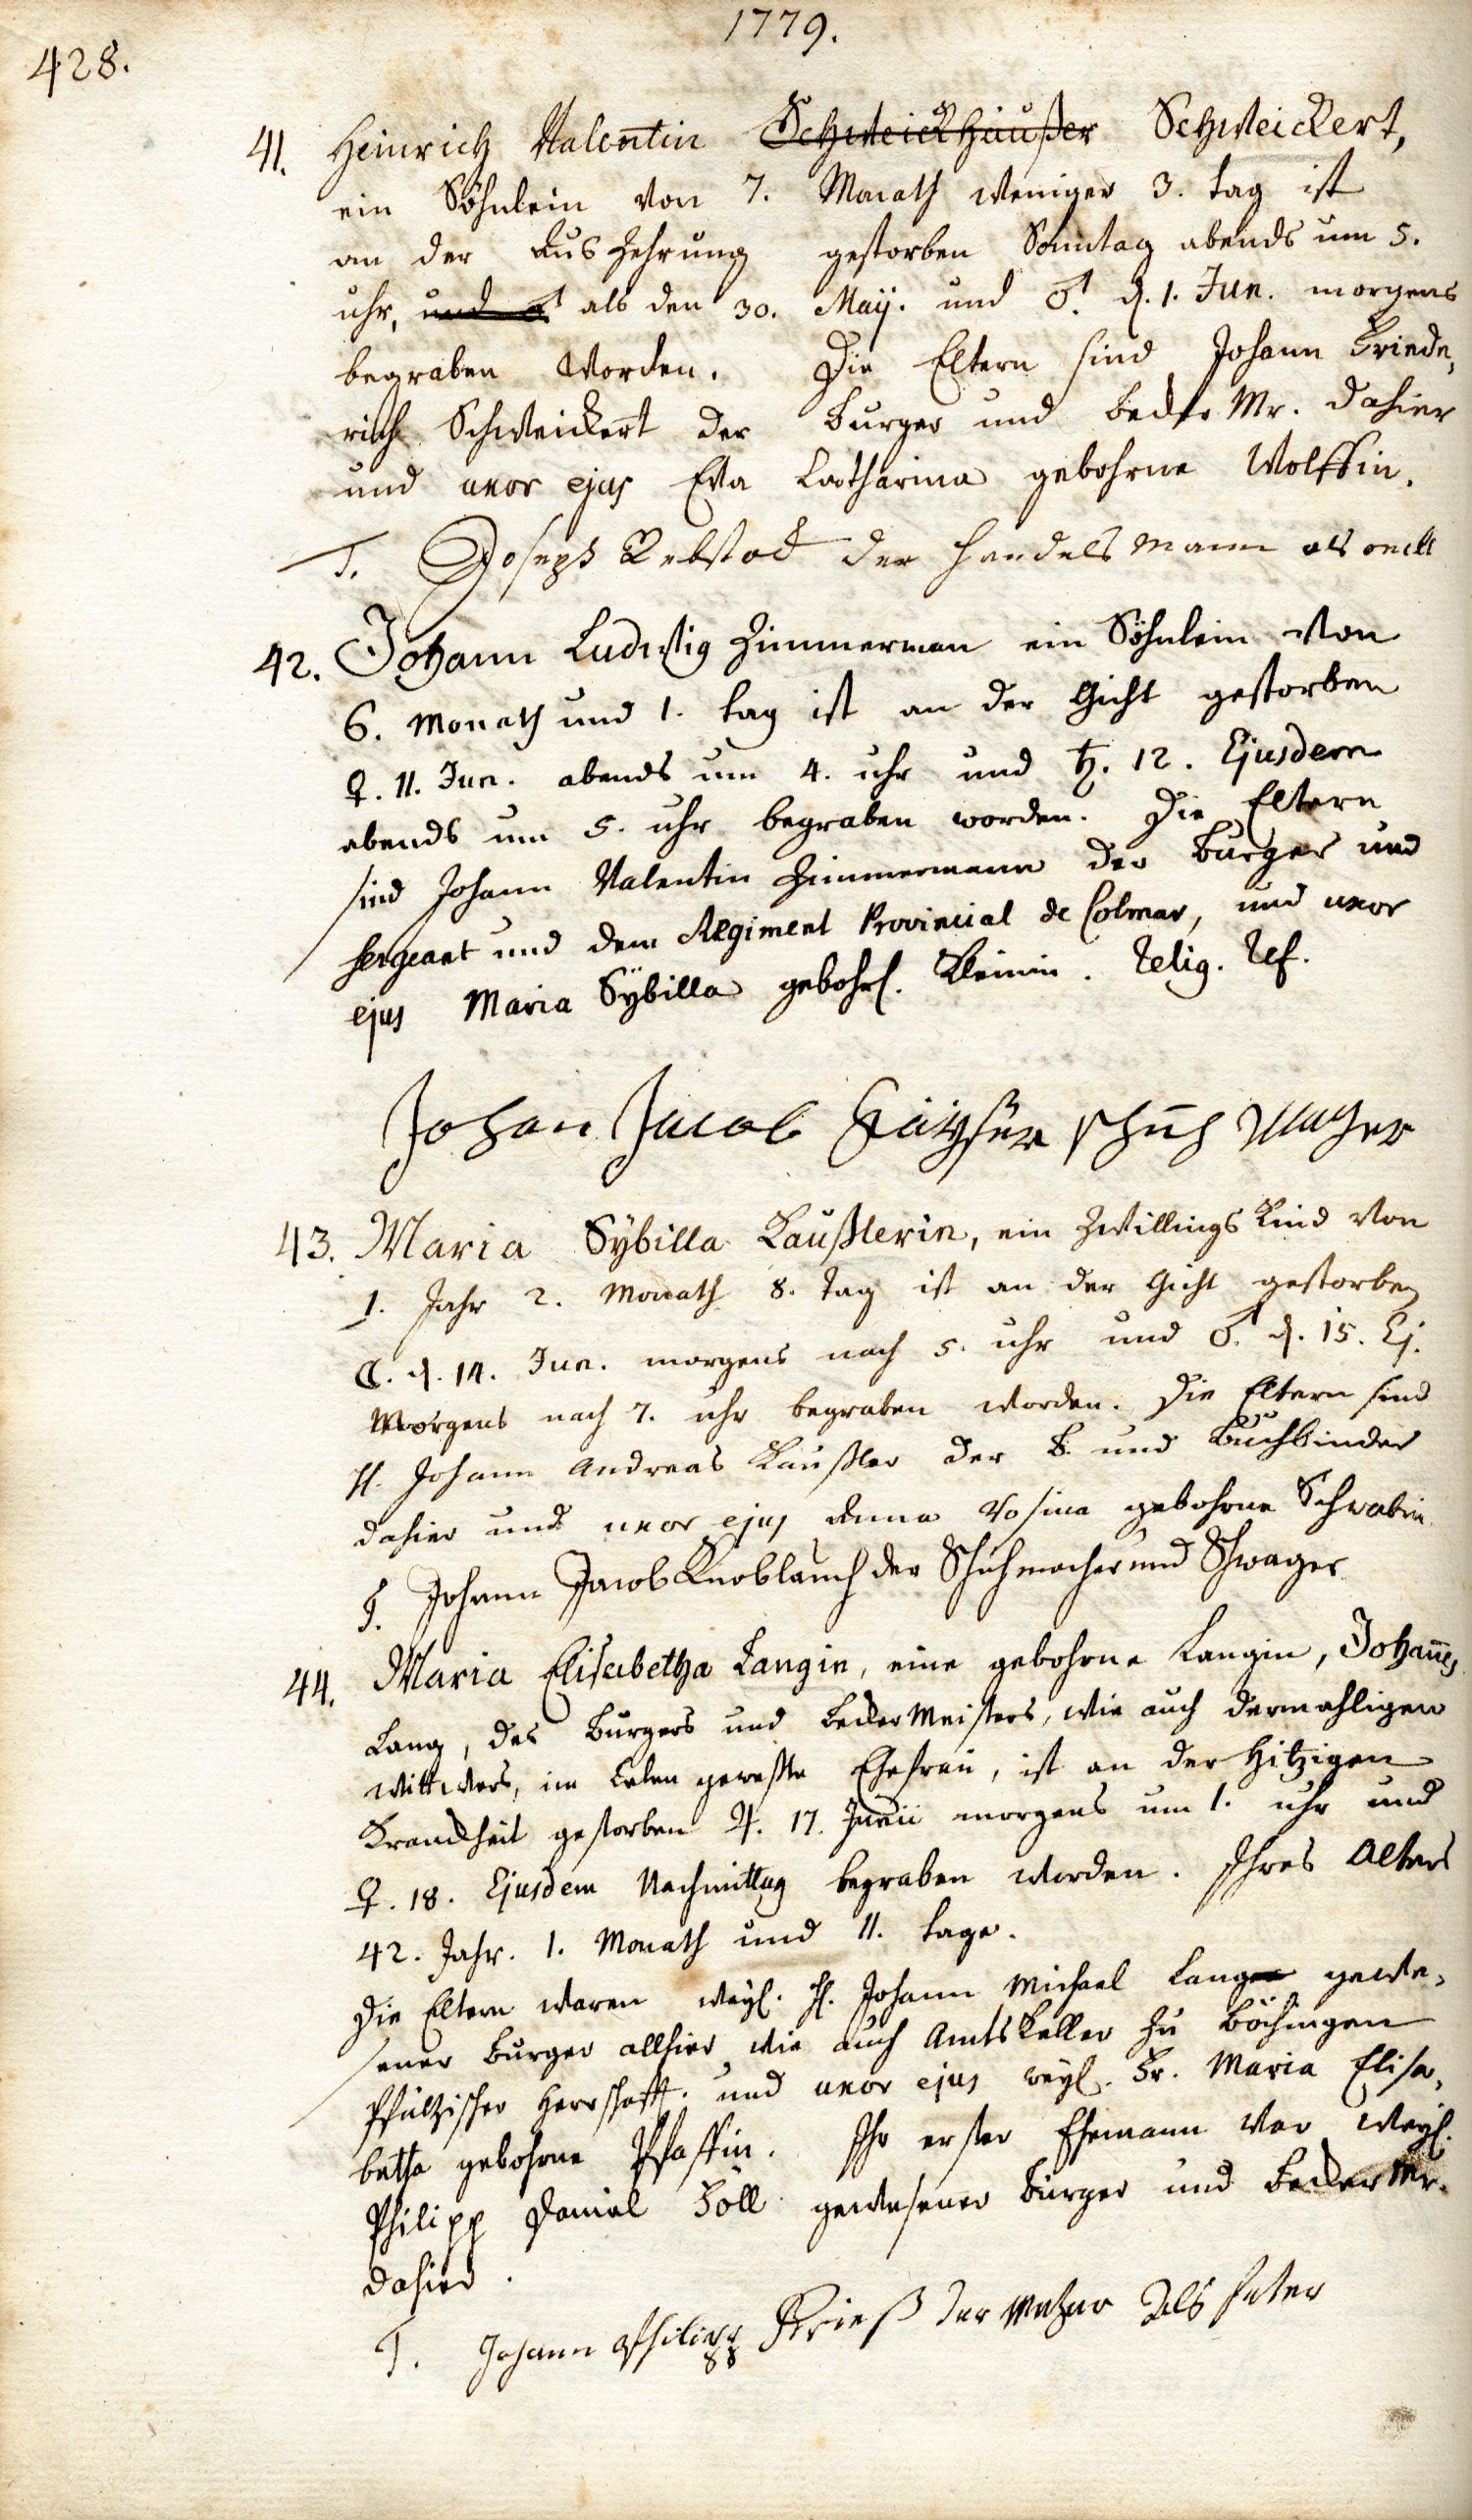 1779.
428.
41. Heinrich Valentin Schweickhäußer Schweickert,
ein Söhnlein von 7. Monath weniger 3. tag ist
an der Auszehrung gestorben Sonntag abends um 5.
uhr, und ♂ als den 30. Maÿ. und ♂. d. 1. Jun. morgens
begraben worden. Die Eltern sind Johann Friede,
rich Schweickert der Burger und Becker Mr. dahier
und uxor ejus Eva Catharina gebohrne Wolffin.
T. Joseph Rebstock der Handels mann als
42. Johann Ludwig Zimmerman ein Söhnlein von
6. Monath und 1. tag ist an der Gicht gestorben
♀. 11. Jun. abends um 4. uhr und ♄. 12. Ejusdem
abends um 5. uhr begraben worden. Die Eltern
sind Johann Valentin Zimmermann der Burger und
sergeant und dem Regiment Provincial de Colmar, und uxor
ejus Maria Sÿbilla gebohr. Kleinin. Relig. Ref.
Johan Jacob
43. Maria Sÿbilla Kaußlerin, ein Zwillings Kind von
1. Jahr 2. Monath 8. tag ist an der Gicht gestorben
☾. d. 14. Jun. morgens nach 5. uhr und ♂. d. 15. Ej.
Morgens nach 7. uhr begraben worden. Die Eltern sind
H. Johann Andreas Kaußler der B. und Buchbinder
dahier und uxor ejus Anna Rosina gebohrne Schwabin
T. Johann Jacob Knoblauch der Schuhmacher und Schwager
44. Maria Elisabetha Langin, eine gebohrne Langin, Johannes
Lang, des Burgers und Becker Meisters, wie auch dermahligen
Wittwers, im Leben geweßte Ehefrau, ist an der hitzigen
Kranckheit gestorben ♃. 17. Junii morgens um 1. uhr und
♀. 18. Ejusdem Nachmittag begraben worden. Ihres Alters
42. Jahr. 1. Monath und 11. tage.
Die Eltern waren weyl. H. Johann Michael Lang gewe,
sener Burger allhier wie auch Amtskeller zu Böchingen
Pfältzischer Herrschafft. und uxor ejus weyl. Fr. Maria Elisa,
betha gebohrne Pfaffin. Ihr erster Ehemann war weyl.
Philipp Daniel Söll gewesener Burger und Becker Mr.
dahier.
T. Johann Philipp Frieß der Metzger als